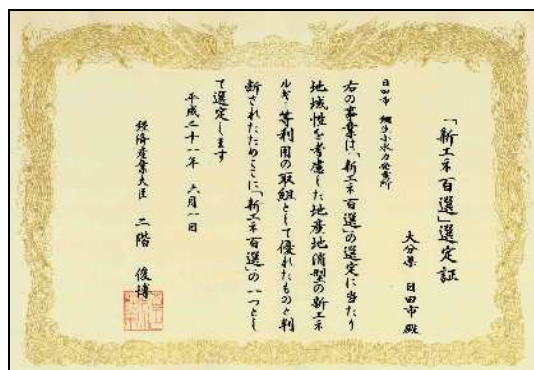 「新エネ百選」選定証
大分県 日田市 殿
日田市 小水力発電所
右の事業は、「新エネ百選」の選定に当たり
地域性を考慮した地産地消型の新エネ
ルギー等利用の取組として優れたものと判
断されたためここに「新エネ百選」の一つとし
て選定します
平成二十一年 六月一日
経済産業大臣 二階 俊博